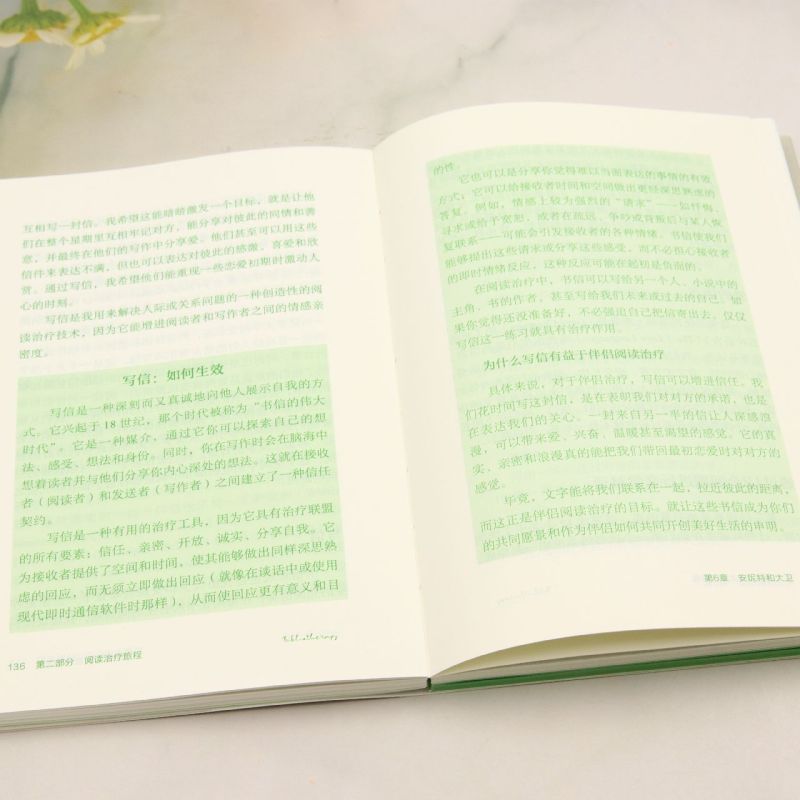 互相写一封信。我希望这能暗暗激发一个目标，就是让他
们在整个星期里互相牢记对方，能分享对彼此的同情和善
意，并最终在他们的写作中分享爱。他们甚至可以用这些
信件来表达不满，但也可以表达对彼此的感激、喜爱和欣
赏。通过写信，我希望他们能重现一些恋爱初期时激动人
心的时刻。
写信是我用来解决人际或关系问题的一种创造性的阅
读治疗技术，因为它能增进阅读者和写作者之间的情感亲
密度。
写信：如何生效
写信是一种深刻而又真诚地向他人展示自我的方
式。它兴起于 18 世纪，那个时代被称为“书信的伟大
时代”。它是一种媒介，通过它你可以探索自己的想
法、感受、想法和身份。同时，你在写作时会在脑海中
想着读者并与他们分享你内心深处的想法。这就在接收
者（阅读者）和发送者（写作者）之间建立了一种信任
契约。
写信是一种有用的治疗工具，因为它具有治疗联盟
的所有要素：信任、亲密、开放、诚实、分享自我。它
为接收者提供了空间和时间，使其能够做出同样深思熟
虑的回应，而无须立即做出回应（就像在谈话中或使用
现代即时通信软件时那样），从而使回应更有意义和目
Bibliotherapy
136 第二部分 阅读治疗旅程
的性。
它也可以是分享你觉得难以当面表达的事情的有效
方式；它可以给接收者时间和空间做出更轻深思熟虑的
答复。例如，情感上较为强烈的“请求”——如忏悔、
寻求或给予宽恕，或者在疏远、争吵或背叛后与某人恢
复联系——可能会引发接收者的各种情绪。书信使我们
能够提出这些请求或分享这些感受，而不必担心接收者
的即时情绪反应，这种反应可能在起初是负面的。
在阅读治疗中，书信可以写给另一个人、小说中的
主角、书的作者，甚至写给我们未来或过去的自己。如
果你觉得还没准备好，不必强迫自己把信寄出去，仅仅
写信这一练习就具有治疗作用。
为什么写信有益于伴侣阅读治疗
具体来说，对于伴侣治疗，写信可以增进信任。我
们花时间写这封信，是在表明我们对对方的承诺，也是
在表达我们的关心。一封来自另一半的信让人深感浪
漫，可以带来爱、兴奋、温暖甚至渴望的感觉。它的真
实、亲密和浪漫真的能把我们带回最初恋爱时对对方的
感觉。
毕竟，文字能将我们联系在一起，拉近彼此的距离，
而这正是伴侣阅读治疗的目标。就让这些书信成为你们
的共同愿景和作为伴侣如何共同开创美好生活的申明。
第6章 安妮特和大卫